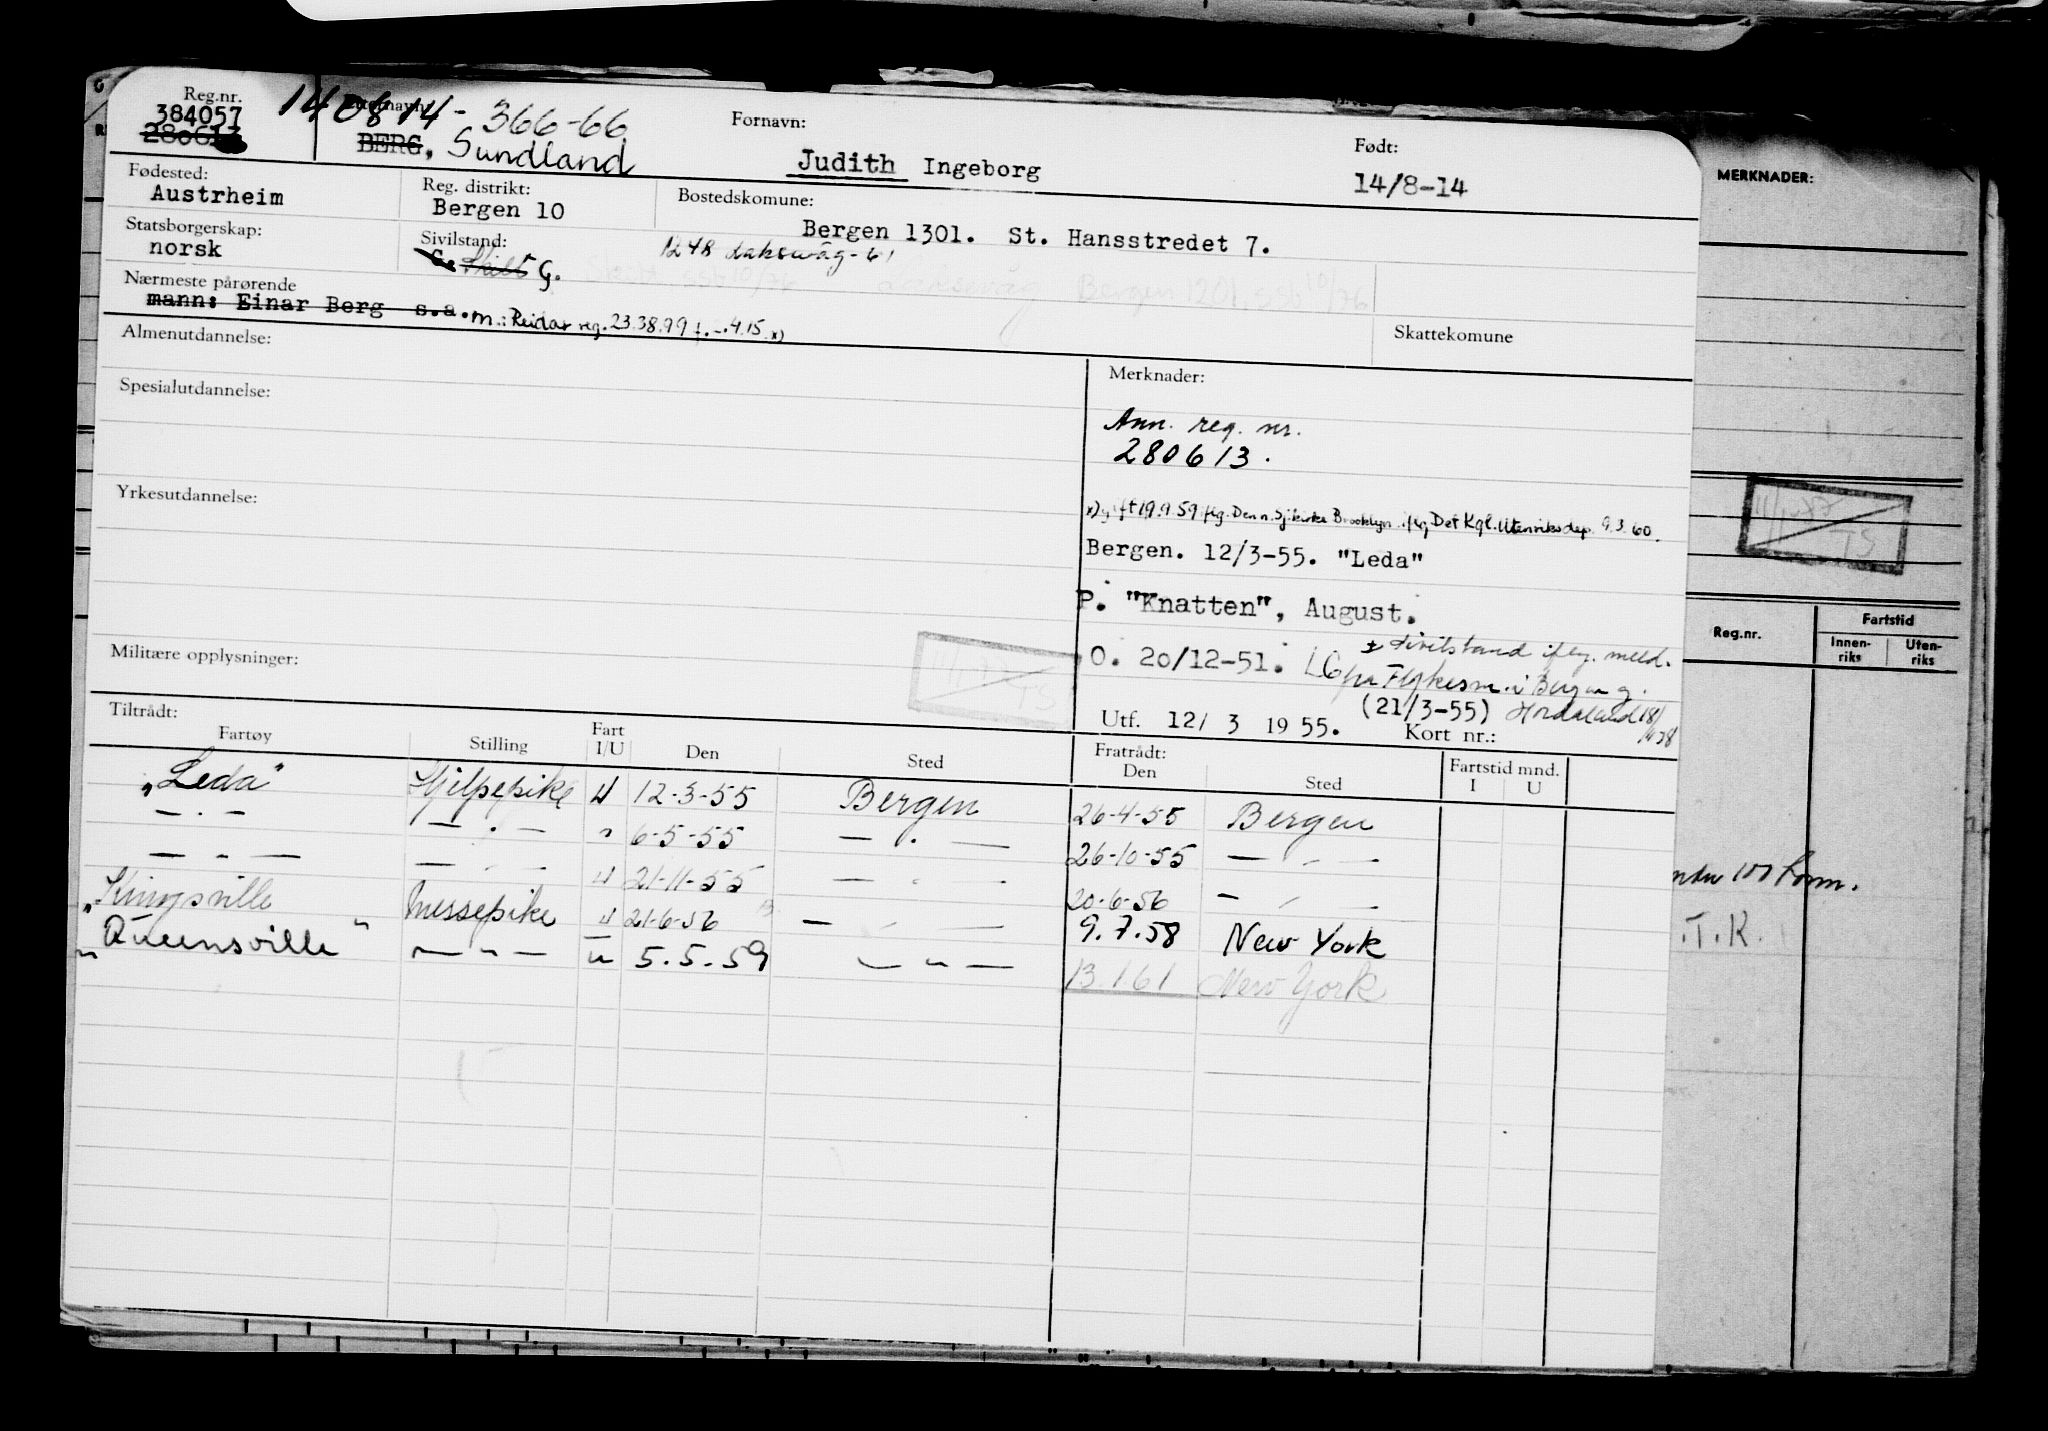 Reg.nr.
384057
280613
140814-366-66
Etternavn:
BERG, Sundland
Fornavn:
Judith Ingeborg
Født:
14/8-14
MERKNADER:
Fødested:
Austrheim
Reg. distrikt:
Bergen 10
Bostedskomune:
Bergen 1301. St. Hansstredet 7.
1248 Laksevåg-61
Laksevåg Bergen 1201, ssb 10/76
Statsborgerskap:
norsk
Sivilstand:
G. Skilt G.
Nærmeste pårørende
mann: Einar Berg s.a. m.: Reidar reg. 23.38.99 f. -.4.15 x)
Skattekomune
Almenutdannelse:
Spesialutdannelse:
Yrkesutdannelse:
Militære opplysninger:
Merknader:
Ann. reg. nr.
280613.
x) gift 19.9.59 flg. Den n. Sjkirke Brooklyn iflg Det Kgl. Utenriksdep 9.3.60.
Bergen. 12/3-55. "Leda"
P. "Knatten", August.
O. 20/12-51. LG
± sivilstand iflg. meld.
fra Fylkesm. i Bergen og
(21/3-55) Hordaland 18/
Utf. 12/ 3 1955. Kort nr.:
TS
TS
Reg.nr.
Fartstid
Innen-
riks
Uten-
riks
Tiltrådt:
Fartøy Stilling Fart I/U Den Sted
Fratrådt:
Den Sted
Fartstid mnd.
I U
"Leda" Hjelpepike U 12-3-55 Bergen 26-4-55 Bergen
— . — — . — " 6-5-55 — . — 26-10-55 — . —
— " — — . — U 21-11-55 — . — 20-6-56 — . —
"Kingsville" Messepike U 21-6-56 — . — 9.7.58 New York
"Queensville" — " — u 5.5.59 — " — 13.1.61 New York
.T.K.